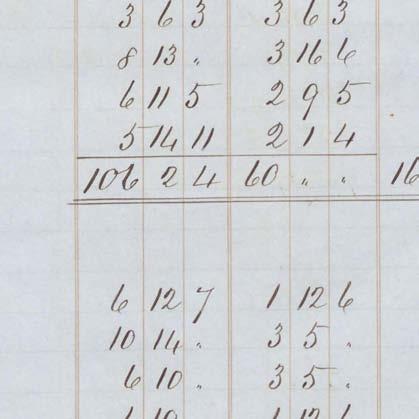 3 6 3 3 6 3
8 13 " 3 16 6
6 11 5 2 9 5
5 14 11 2 1 4
106 2 4 60 " " 16
6 12 7 1 12 6
10 14 " 3 5 "
6 10 " 3 5 "